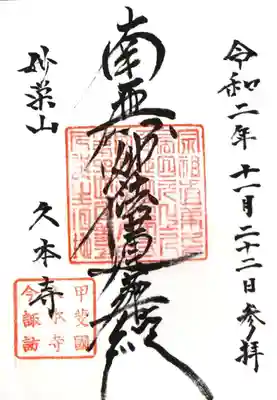 令和二年十一月二十二日参拝
南無妙法蓮華経
妙栄山
久本寺
甲斐國
久本寺
今諏訪